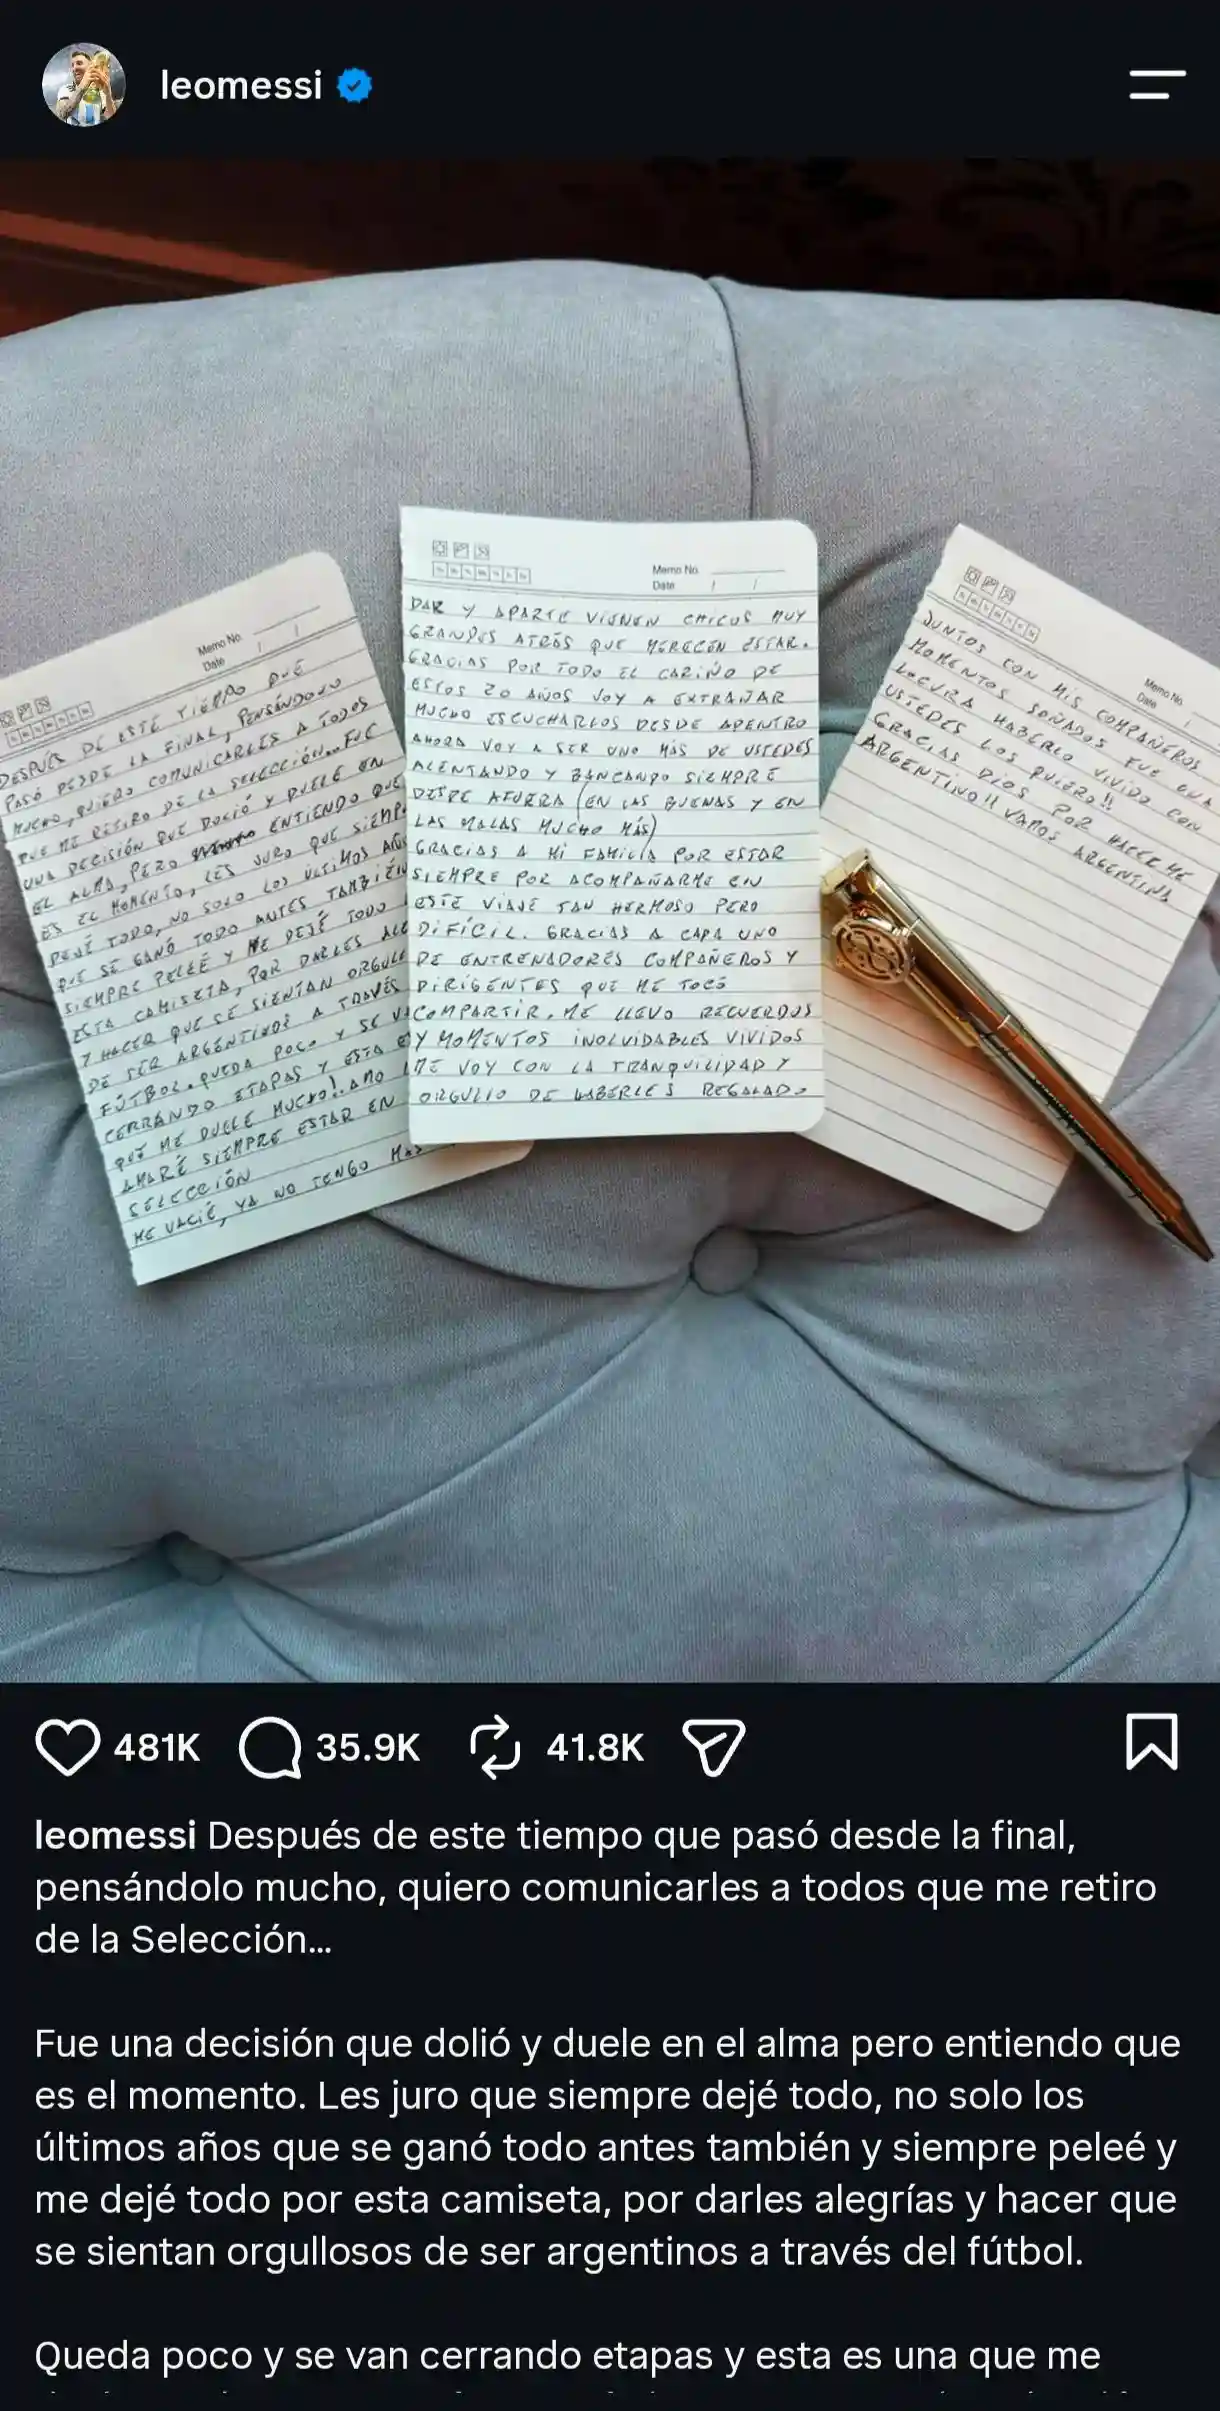 leomessi
Memo No.
Date / /
DESPUÉS DE ESTE TIEMPO QUE
PASÓ DESDE LA FINAL, PENSÁNDOLO
MUCHO, QUIERO COMUNICARLES A TODOS
QUE ME RETIRO DE LA SELECCIÓN... FUE
UNA DECISIÓN QUE DOLIÓ Y DUELE EN
EL ALMA, PERO ENTIENDO QUE
ES EL MOMENTO, LES JURO QUE SIEMP
DEJÉ TODO, NO SOLO LOS ÚLTIMOS AÑO
QUE SE GANÓ TODO ANTES TAMBIÉN
SIEMPRE PELEÉ Y ME DEJÉ TODO
ESTA CAMISETA, POR DARLES ALE
Y HACER QUE SE SIENTAN ORGULL
DE SER ARGENTINOS A TRAVÉS
FÚTBOL. QUEDA POCO Y SE VA
CERRANDO ETAPAS Y ESTA E
QUE ME DUELE MUCHO!. AMO
AMARÉ SIEMPRE ESTAR EN
SELECCIÓN
ME VACIÉ, YA NO TENGO MÁS
Memo No.
Date / /
DAR Y APARTE VIENEN CHICOS MUY
GRANDES ATRÁS QUE MERECEN ESTAR.
GRACIAS POR TODO EL CARIÑO DE
ESTOS 20 AÑOS VOY A EXTRAÑAR
MUCHO ESCUCHARLOS DESDE ADENTRO
AHORA VOY A SER UNO MÁS DE USTEDES
ALENTANDO Y BANCANDO SIEMPRE
DESDE AFUERA (EN LAS BUENAS Y EN
LAS MALAS MUCHO MÁS)
GRACIAS A MI FAMILIA POR ESTAR
SIEMPRE POR ACOMPAÑARME EN
ESTE VIAJE TAN HERMOSO PERO
DIFÍCIL. GRACIAS A CADA UNO
DE ENTRENADORES COMPAÑEROS Y
DIRIGENTES QUE ME TOCÓ
COMPARTIR. ME LLEVO RECUERDOS
Y MOMENTOS INOLVIDABLES VIVIDOS
ME VOY CON LA TRANQUILIDAD Y
ORGULLO DE HABERLES REGALADO
Memo No.
Date /
JUNTOS CON MIS COMPAÑEROS
MOMENTOS SOÑADOS FUE UNA
LOCURA HABERLO VIVIDO CON
USTEDES LOS QUIERO!!
GRACIAS DIOS POR HACERME
ARGENTINO!! VAMOS ARGENTINA
481K 35.9K 41.8K
leomessi Después de este tiempo que pasó desde la final,
pensándolo mucho, quiero comunicarles a todos que me retiro
de la Selección...
Fue una decisión que dolió y duele en el alma pero entiendo que
es el momento. Les juro que siempre dejé todo, no solo los
últimos años que se ganó todo antes también y siempre peleé y
me dejé todo por esta camiseta, por darles alegrías y hacer que
se sientan orgullosos de ser argentinos a través del fútbol.
Queda poco y se van cerrando etapas y esta es una que me